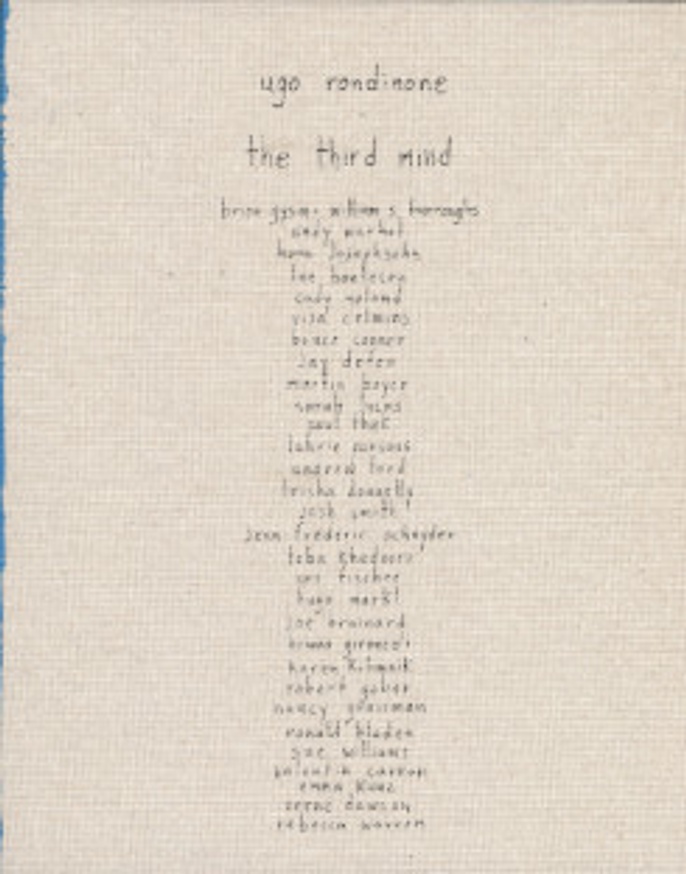 ugo rondinone
the third mind
brion gysin william s. burroughs
andy warhol
hans josephsohn
lee bontecou
cady noland
vija celmins
bruce conner
jay defeo
martin boyce
sarah lucas
paul thek
laurie parsons
andrew lord
trisha donnelly
josh smith
jean frédéric schnyder
toba khedoori
urs fischer
hugo markl
joe brainard
bruno gironcoli
karen kilimnik
robert gober
nancy grossman
ronald bladen
sue williams
valentin carron
emma kunz
verne dawson
rebecca warren